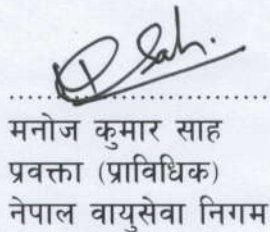 मनोज कुमार साह
प्रवक्ता (प्राविधिक)
नेपाल वायुसेवा निगम